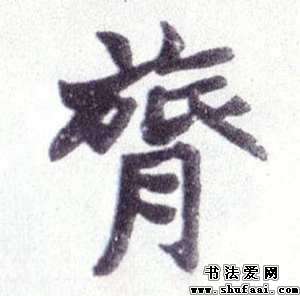 膂
书法爱网
www.shufaai.com